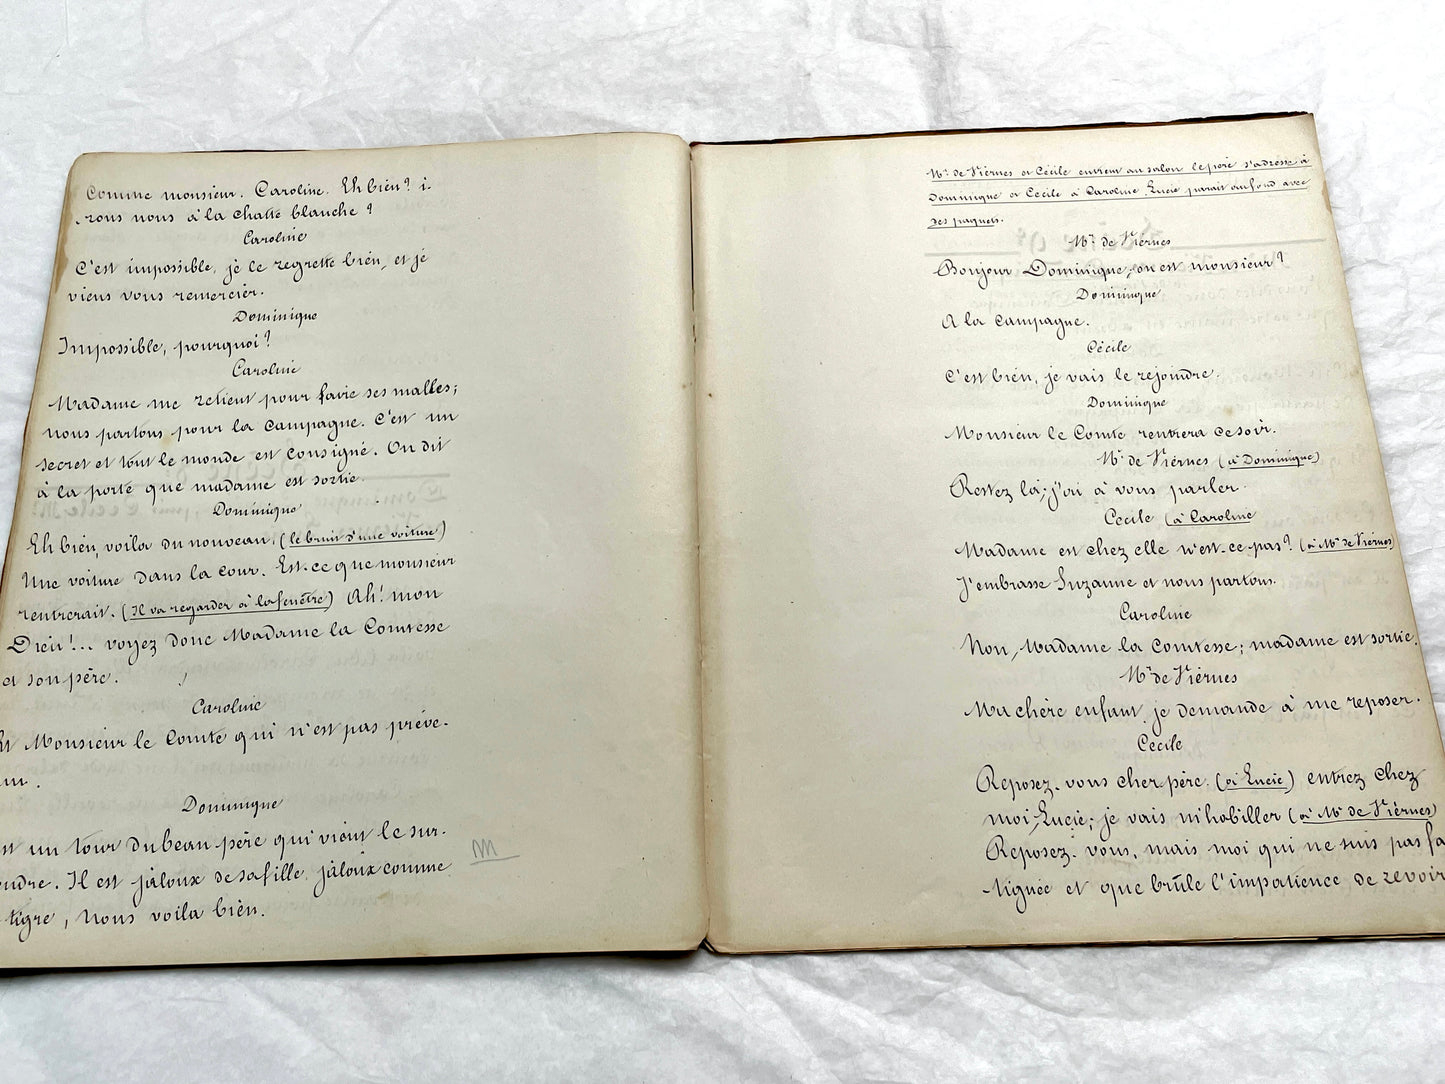 Comme monsieur. Caroline. Eh bien? i-
rons nous à la chatte blanche?
Caroline
C'est impossible, je le regrette bien, et je
viens vous remercier.
Dominique
Impossible, pourquoi?
Caroline
Madame me retient pour faire ses malles;
nous partons pour la campagne. C'est un
secret et tout le monde est consigné. On dit
à la porte que madame est sortie.
Dominique
Eh bien, voila du nouveau. (le bruit d'une voiture)
Une voiture dans la cour. Est-ce que monsieur
rentrerait. (Il va regarder à la fenêtre) Ah! mon
Dieu!... voyez donc Madame la Comtesse
et son père.
Caroline
Et Monsieur le Comte qui n'est pas préve-
nu.
Dominique
un tour du beau père qui vient le sur-
prendre. Il est jaloux de sa fille, jaloux comme
tigre, nous voila bien.
M
Mr de Viérnes et Cécile entrent au salon le père s'adresse à
Dominique et Cécile à Caroline. Lucie parait au fond avec
des paquets.
Mr de Viérnes
Bonjour Dominique, ou est monsieur?
Dominique
A la campagne.
Cécile
C'est bien, je vais le rejoindre.
Dominique
Monsieur le Comte rentrera ce soir.
Mr de Viérnes (à Dominique)
Restez là; j'ai à vous parler.
Cecile (à Caroline
Madame est chez elle n'est-ce-pas? (à Mr de Viérnes)
J'embrasse Suzanne et nous partons.
Caroline
Non, Madame la Comtesse; madame est sortie.
Mr de Viérnes
Ma chère enfant, je demande à me reposer.
Cecile
Reposez-vous cher père. (à Lucie) entrez chez
moi, Lucie; je vais m'habiller (à Mr de Viérnes)
Reposez-vous, mais moi qui ne suis pas fa
tiguée et que brûle l'impatience de revoir